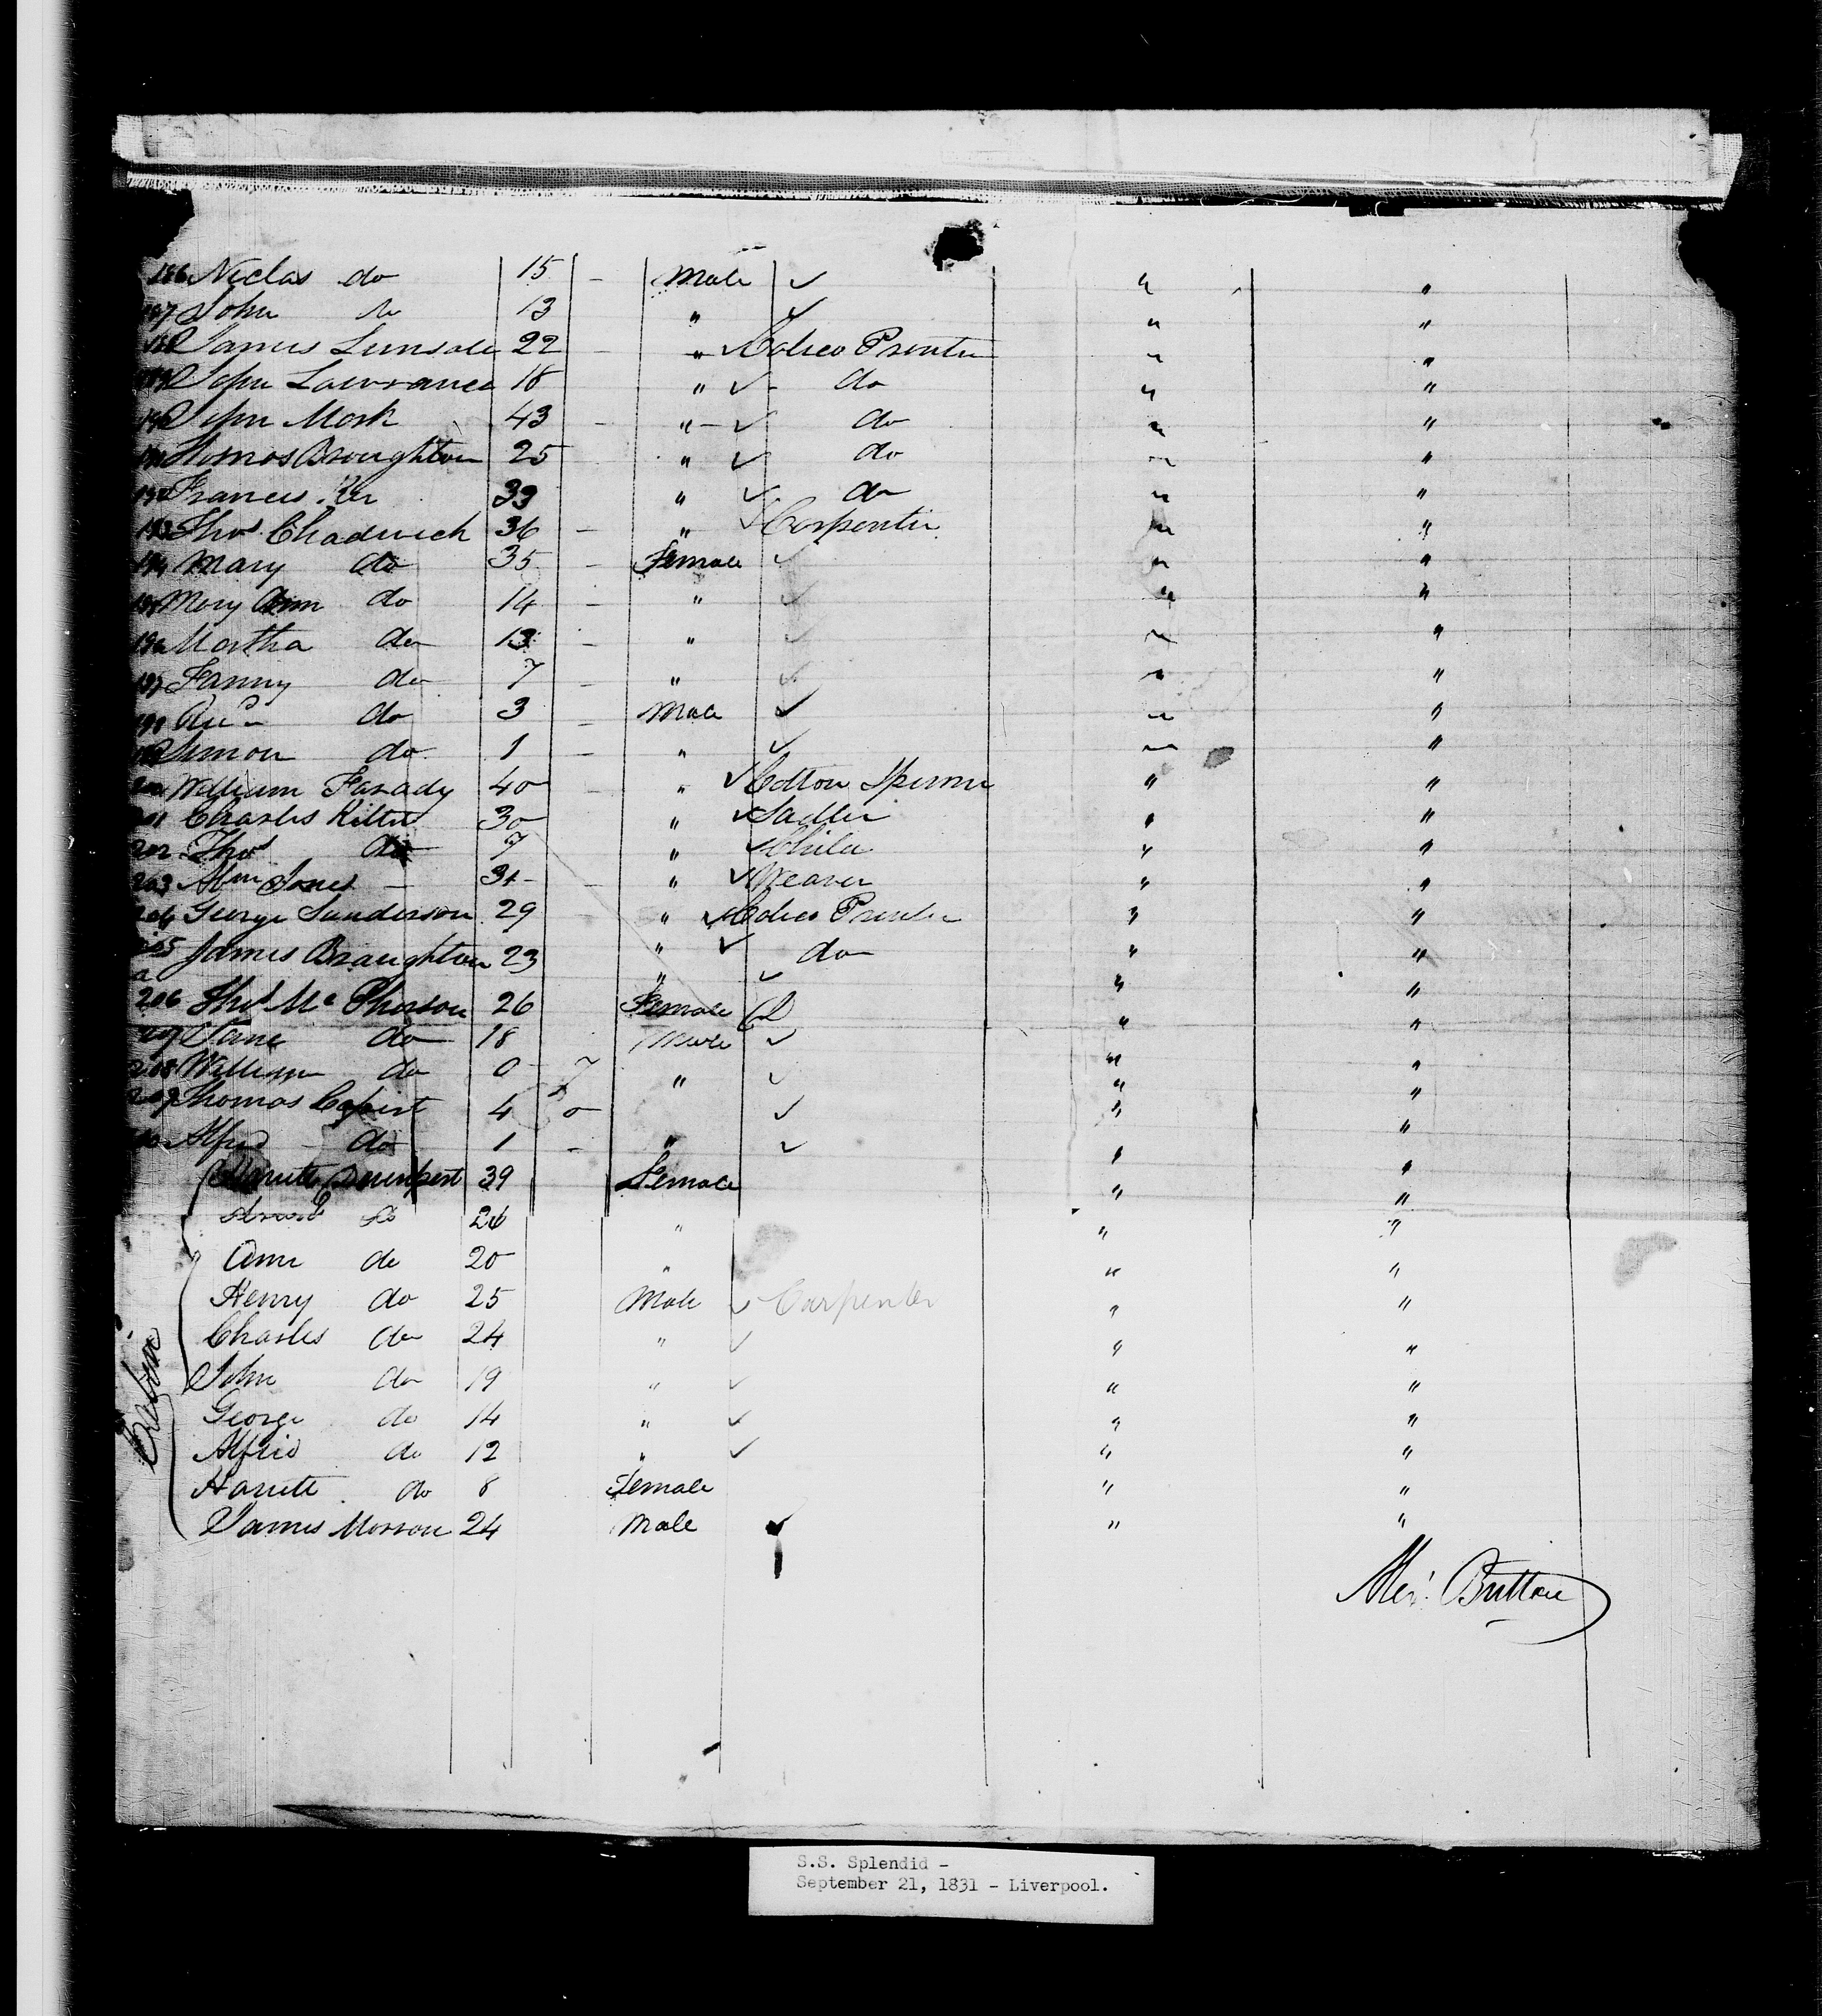 186 Niclas do 15 - Male ✓ " "
187 John do 13 " ✓ " "
188 James Lunsdle 22 - " ✓ Calico Printer " "
189 John Lawrance 18 " ✓ - do " "
190 John Mosk 43 - " - ✓ do " "
191 Thomas Broughton 25 " ✓ do " "
192 Francis 33 " ✓ do " "
193 Thos Chadwick 36 - " ✓ Carpenter " "
194 Mary do 35 - Female ✓ " "
195 Mary Ann do 14 - " ✓ " "
196 Martha do 13 - " ✓ " "
197 Fanny do 7 - " ✓ " "
198 do 3 - Male ✓ " "
199 Simon do 1 - " ✓ " "
200 William Farady 40 - " ✓ Cotton Spinner " "
201 Charles Kilter 30 " ✓ Sadler " "
202 Thos do 7 " ✓ Child " "
203 Abm Jones - 31 - - " ✓ Weaver " "
204 George Sanderson 29 - " ✓ Calico Printer " "
205 James Braughton 23 " ✓ do " "
a " ✓ " "
206 Thos Mc Pherson 26 Female " "
207 Jane do 18 Male ✓ " "
208 William do 0 7 " ✓ " "
209 Thomas 4 0 ✓ " "
210 Alfred do 1 - " ✓ " "
Harriette Davenport 39 Female " "
do 26 " " "
Ann do 20 " " "
Henry do 25 Male ✓ Carpenter " "
Charles do 24 " ✓ " "
John do 19 " ✓ " "
George do 14 " ✓ " "
Alfred do 12 " ✓ " "
Harriette do 8 Female " "
James Morson 24 Male ✓ " "
Cabin
Alexr. Britton
S.S. Splendid -
September 21, 1831 - Liverpool.